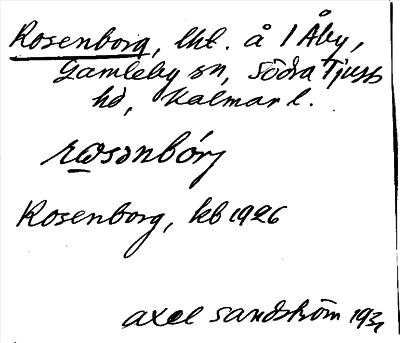 Rosenborg, lht. å 1 Åby,
Gamleby sn, Södra Tjusts
hd, Kalmar l.
Rosenborg, kb 1926
axel sandström 193